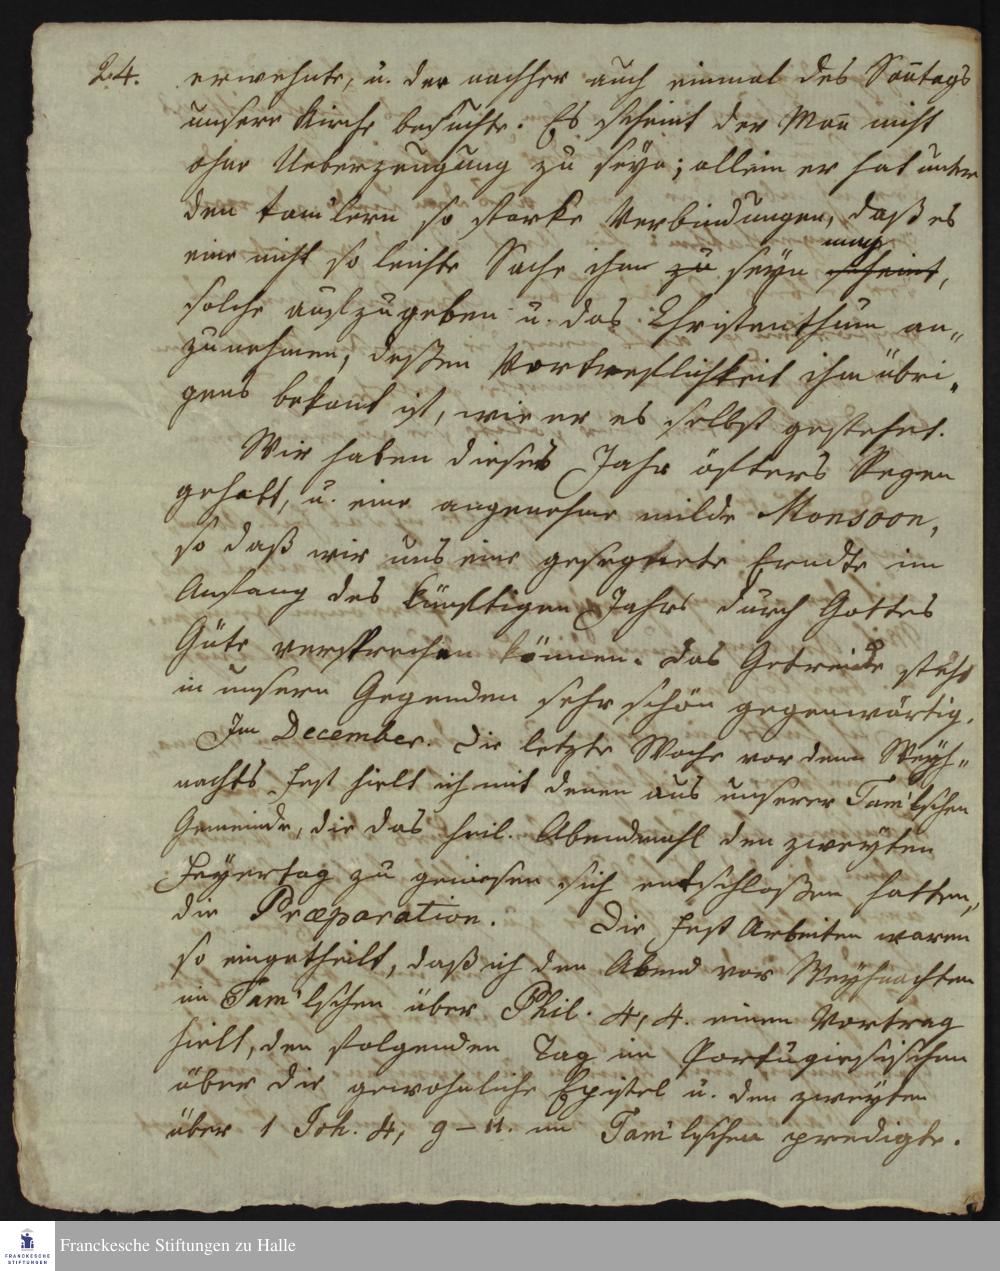 24.
erwehnte, u. der nachher auch einmal des Soñtags
unsere Kirche besuchte. Es scheint der Mañ nicht
ohne Ueberzeugung zu seyn; allein er hat unter
den Tamulern so starke Verbindungen, daß es
eine nicht so leichte Sache ihm zu seyn scheint, mag
solche aufzugeben u. das Christenthum an-
zunehmen, deßen Vortreflichkeit ihm übri-
gens bekant ist, wie er es selbst gestehet.
Wir haben dieses Jahr öfters Regen
gehabt, u. eine angenehme milde Monsoon,
so daß wir uns eine gesegnete Erndte im
Anfang des künftigen Jahrs durch Gottes
Güte versprechen können. Das Getreide steht
in unsern Gegenden sehr schön gegenwärtig.
Im December. Die letzte Woche vor dem Weyh-
nachts-Fest hielt ich mit denen aus unserer Tam'lschen
Gemeinde, die das heil. Abendmahl den zweyten
Feyertag zu geniesen sich entschloßen hatten,
die Præparation. Die Fest Arbeiten waren
so eingetheilt, daß ich den Abend vor Weyhnachten
im Tam'lschen über Phil. 4, 4. einen Vortrag
hielt, den folgenden Tag im Portugiesischen
über die gewohnliche Epistel u. den zweyten
über 1 Joh. 4, 9-11. im Tam'lschen predigte.
FRANCKESCHE
STIFTUNGEN
Franckesche Stiftungen zu Halle